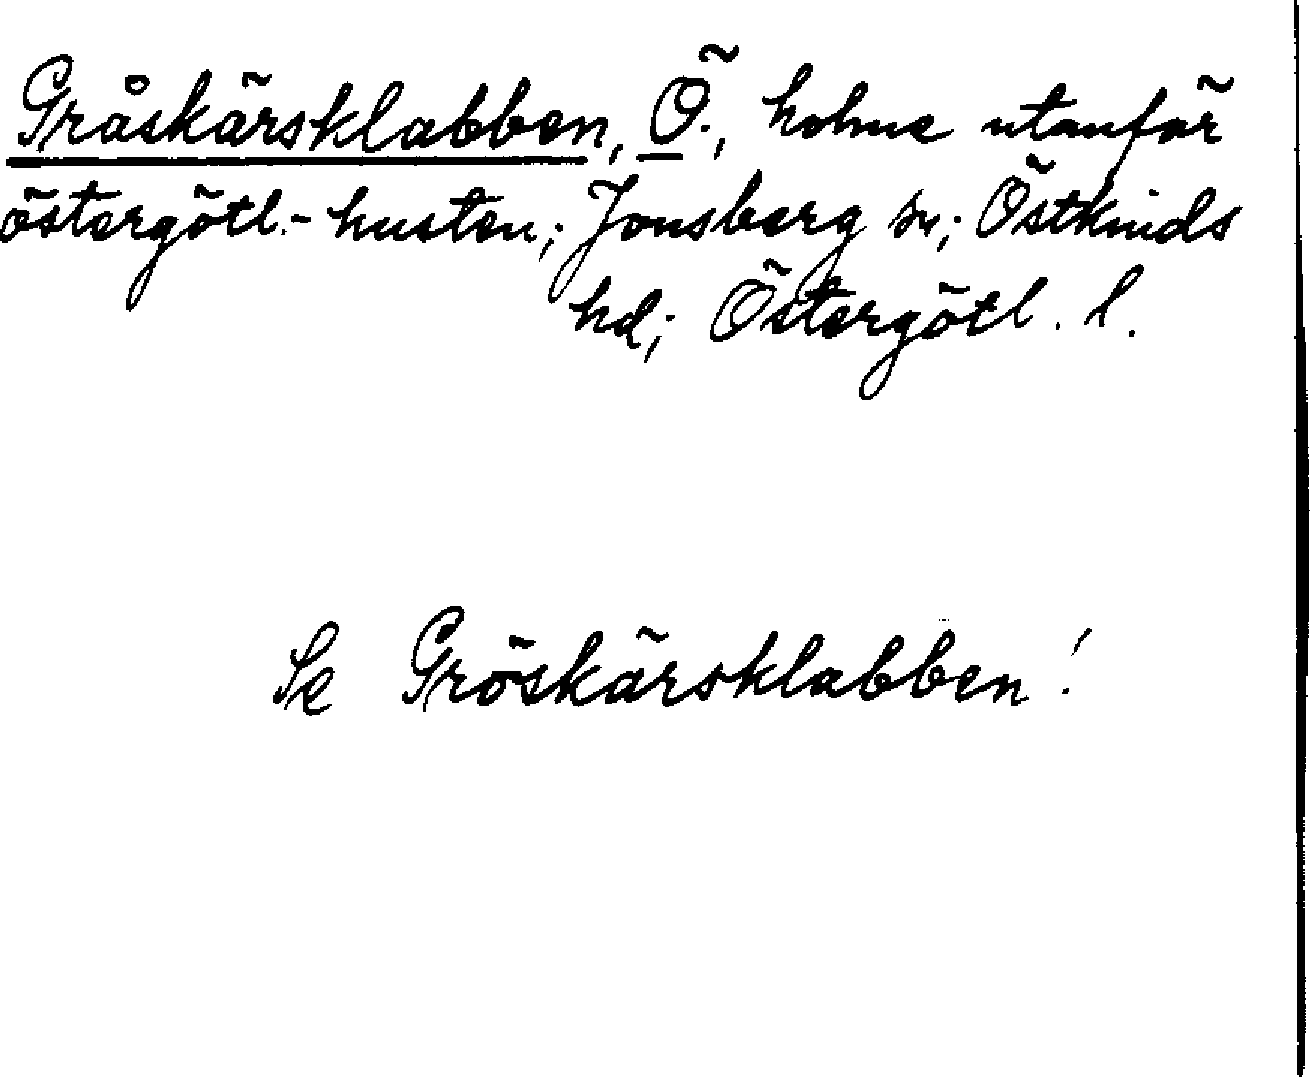 Gråskärsklabben, Ö., holme utanför
östergötl.-kusten; Jonsberg sn; Östkinds
hd; Östergötl. l.
Se Gröskärsklabben!